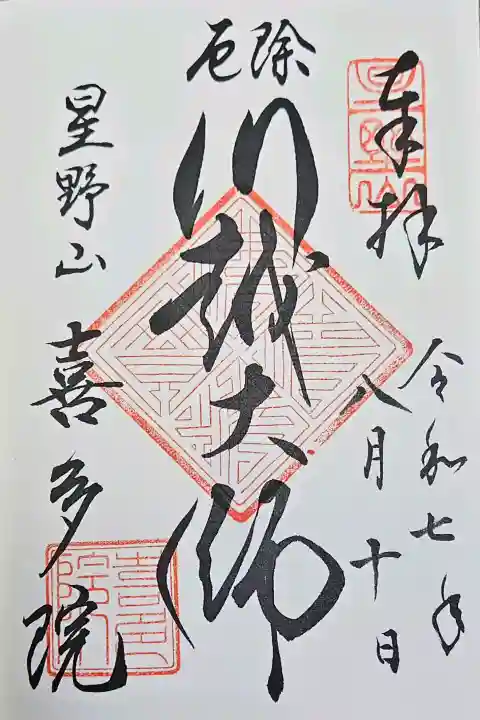 奉拝
令和七年
八月十日
除厄
川越大師
星野山 喜多院
星野山
喜多院